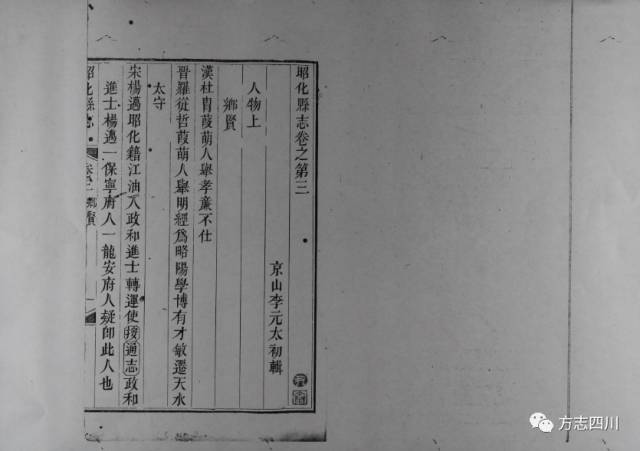 昭化縣志卷之第三
京山李元太初輯
人物上
鄉賢
漢杜冑葭萌人舉孝亷不仕
晉羅從哲葭萌人舉明經爲略陽學博有才敏遷天水
太守
宋楊邁昭化籍江油人政和進士轉運使按通志政和
進士楊邁一保寧府人一龍安府人疑卽此人也
昭化縣志 卷三 鄉賢
方志四川